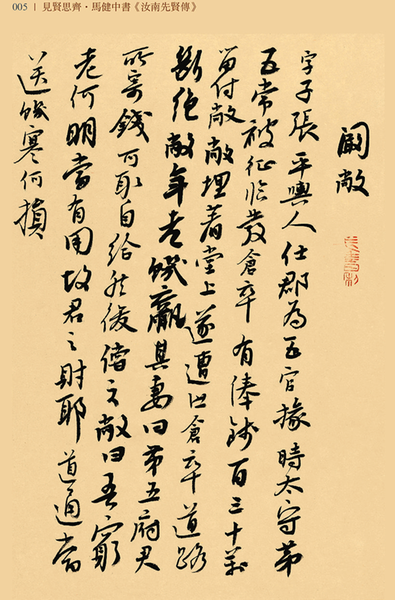 005 | 見賢思齊·馬健中書《汝南先賢傳》
闞敞
字子張平輿人仕郡為五官掾時太守第
五常被征臨發倉卒有俸錢百三十萬
留付敞敞埋着堂上遂遭世倉卒道路
斷絕敞年老饑羸其妻曰第五府君
所寄錢可取自給然後償之敞曰吾窮
老何明當有用故君之財耶道通當
送饑寒何損